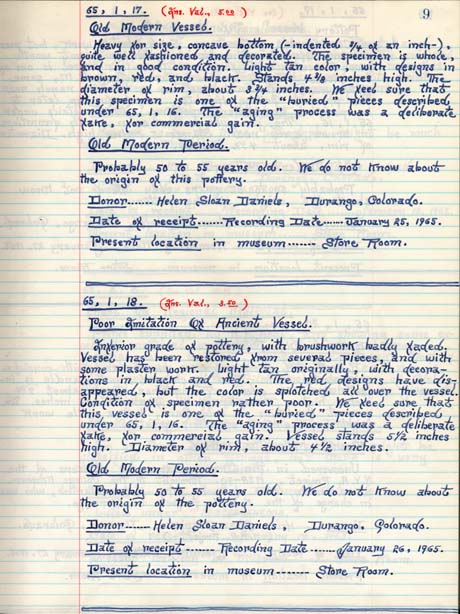 9
65, 1, 17. (Ins. Val., 5.00)
Old Modern Vessel.
Heavy for size, concave bottom, (-indented 1/4 of an inch-),
quite well fashioned and decorated. The specimen is whole,
and in good condition. Light tan color, with designs in
brown, red, and black. Stands 4 3/8 inches high. The
diameter of rim, about 3 3/4 inches. We feel sure that
this specimen is one of the "buried" pieces described
under 65, 1, 16. The "aging" process was a deliberate
fake, for commercial gain.
Old Modern Period.
Probably 50 to 55 years old. We do not know about
the origin of this pottery.
Donor...... Helen Sloan Daniels, Durango, Colorado.
Date of receipt------ Recording Date...... January 25, 1965.
Present location in museum------- Store Room.
65, 1, 18. (Ins. Val., 3.50)
Poor Imitation Of Ancient Vessel.
Inferior grade of pottery, with brushwork badly faded.
Vessel has been restored from several pieces, and with
some plaster work. Light tan originally, with decora-
tions in black and red. The red designs have dis-
appeared, but the color is splotched all over the vessel.
Condition of specimen rather poor. We feel sure that
this vessel is one of the "buried" pieces described,
under 65, 1, 16. The "aging" process was a deliberate
fake, for commercial gain. Vessel stands 5 1/2 inches
high. Diameter of rim, about 4 1/2 inches.
Old Modern Period.
Probably 50 to 55 years old. We do not know about
the origin of the pottery.
Donor------ Helen Sloan Daniels, Durango, Colorado.
Date of receipt------ Recording Date ...... January 26, 1965.
Present location in museum ------- Store Room.